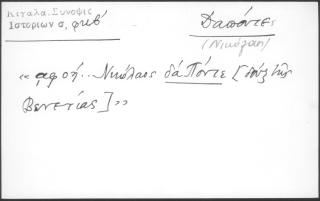 Κιγάλα. Σύνοψις
Ἱστοριῶν σ. φκβʹ
Δαπόντες
(Νικόλαος)
«αφοή... Νικόλαος δά Πόντε [δοὺξ τῆς
Βενετίας]»